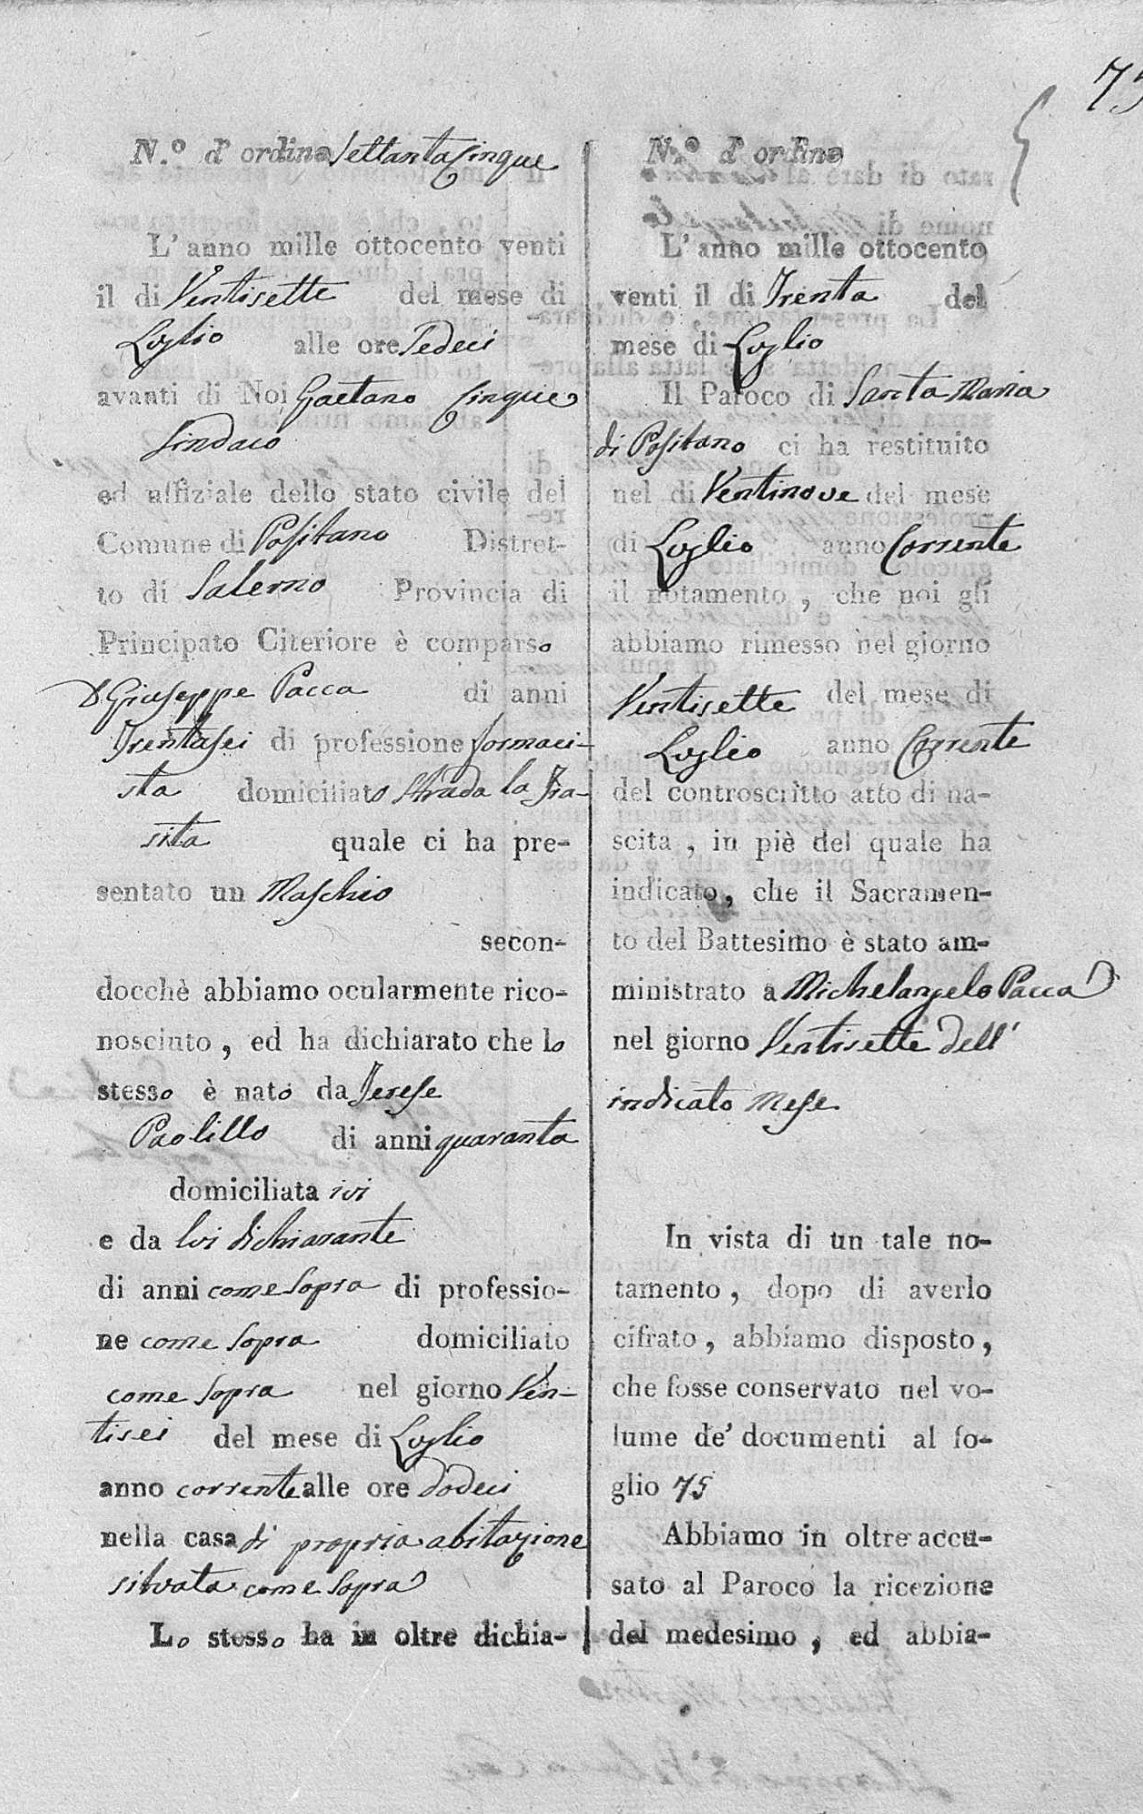 75
N.º d' ordine Settanta Cinque
L' anno mille ottocento venti
il di Ventisette del mese di
Luglio alle ore Sedeci
avanti di Noi Gaetano Cinque
Sindaco
ed uffiziale dello stato civile del
Comune di Positano Distret-
to di Salerno Provincia di
Principato Citeriore è comparso
D. Giuseppe Pacca di anni
Trentasei di professione formaci-
sta domiciliato Strada la Tra-
sita quale ci ha pre-
sentato un Maschio
secon-
docchè abbiamo ocularmente rico-
nosciuto, ed ha dichiarato che lo
stesso è nato da Terese
Paolillo di anni quaranta
domiciliata ivi
e da lui dichiarante
di anni come Sopra di professio-
ne come Sopra domiciliato
come Sopra nel giorno Ven-
tisei del mese di Luglio
anno corrente alle ore dodeci
nella casa di propria abitazione
situata come Sopra
Lo stesso ha in oltre dichia-
N.º d' ordine
L' anno mille ottocento
venti il di Trenta del
mese di Luglio
Il Paroco di Santa Maria
di Positano ci ha restituito
nel di Ventinove del mese
di Luglio anno Corrente
il notamento, che noi gli
abbiamo rimesso nel giorno
Ventisette del mese di
Luglio anno Corrente
del controscritto atto di na-
scita, in piè del quale ha
indicato, che il Sacramen-
to del Battesimo è stato am-
ministrato a Michelangelo Pacca
nel giorno Ventisette dell'
indicato Mese
In vista di un tale no-
tamento, dopo di averlo
cifrato, abbiamo disposto,
che fosse conservato nel vo-
lume de' documenti al fo-
glio 75
Abbiamo in oltre accu-
sato al Paroco la ricezione
del medesimo, ed abbia-